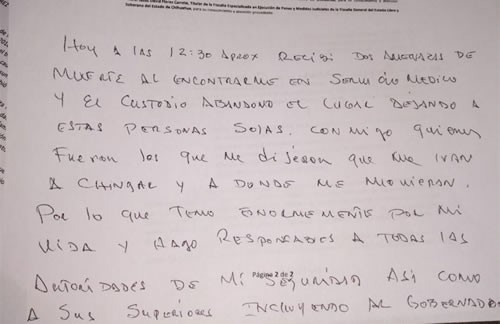 Titular de la Fiscalía Especializada en Ejecución de Penas y Medidas Judiciales de la Fiscalía General del Estado Libre y
Soberano del Estado de Chihuahua, para su conocimiento y atención procedente.
HOY A LAS 12:30 APROX RECIBI DOS AMENAZAS DE
MUERTE AL ENCONTRARME EN SERVICIO MEDICO
Y EL CUSTODIO ABANDONO EL LUGAR DEJANDO A
ESTAS PERSONAS SOLAS. CONMIGO QUIENES
FUERON LOS QUE ME DIJERON QUE ME IVAN
A CHINGAR Y A DONDE ME MOVIERAN.
POR LO QUE TEMO ENORMEMENTE POR MI
VIDA Y HAGO RESPONSABLES A TODAS LAS
Página 2 de 2
AUTORIDADES DE MI SEGURIDAD ASI COMO
A SUS SUPERIORES INCLUYENDO AL GOBERNADOR